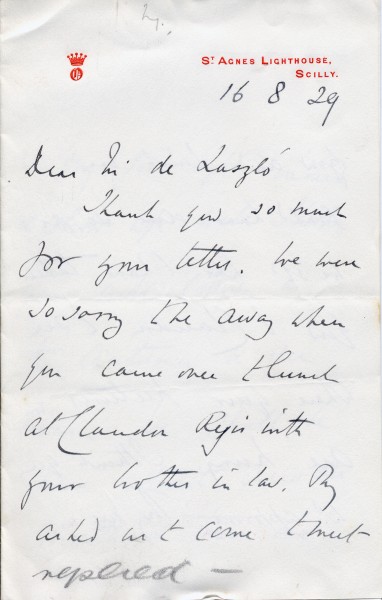 ST AGNES LIGHTHOUSE,
SCILLY.
16 8 29
Dear Mr de László
Thank you so much
for your letter. We were
so sorry to be away when
you came over to lunch
at Clandon Regis with
your brother in law. They
asked us to come to meet